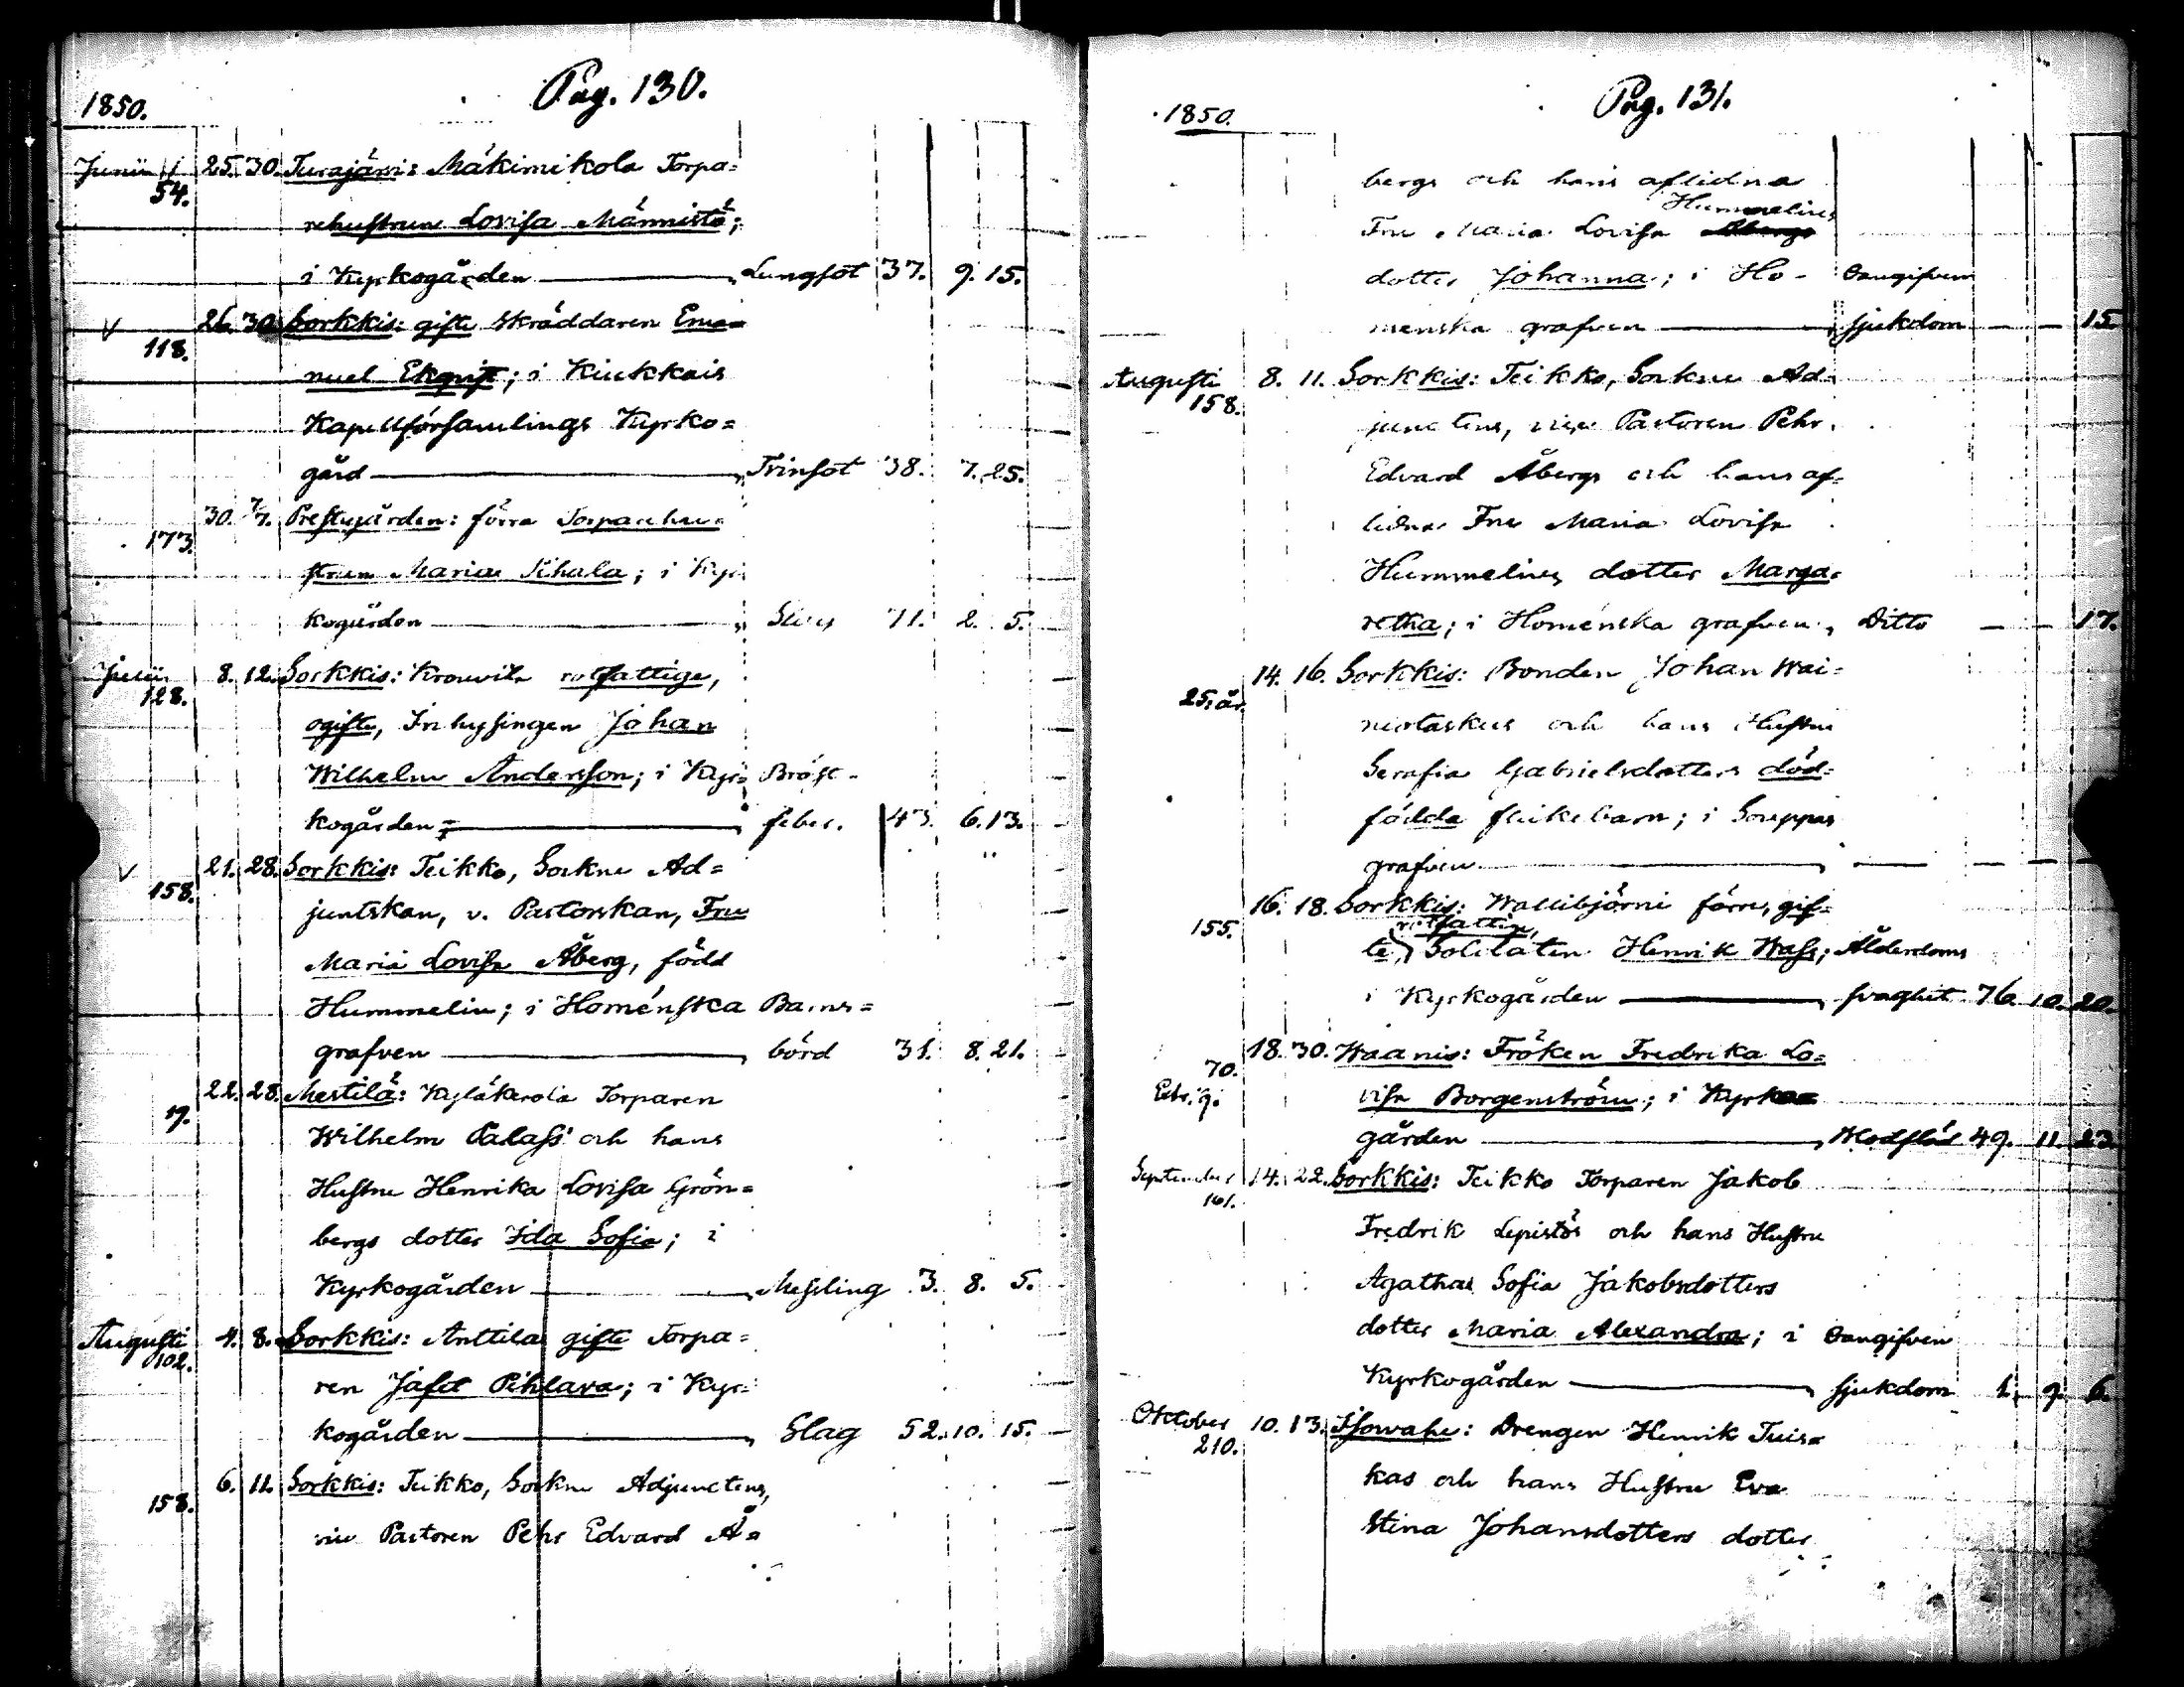 Pag. 130.
1850.
Junii 25. 30. Turajärvi: Mäkimikola Torpa=
54.
rehustrun Lovisa Männistö;
i Kyrkogården Lungsot 37. 9. 15.
V 26. 30. Sorkkis: gifte Skräddaren Ema=
118.
nuel Ekqvist; i Kiukkais
Kapellförsamlings Kyrko=
gård Trinsot 38. 7. 25.
30. 7/7. Prestegården: förra Torparehu=
173.
strun Maria Sihala; i Kyr=
kogården 71. 2. 5.
Julii 8. 12. Sorkkis: rotfattige,
128.
ogifte, Inhysingen Johan
Wilhelm Andersson; i Kyr= Bröst=
kogården feber. 43. 6. 13.
V 21. 28. Sorkkis: Teikko, Sockne Ad=
158.
junktskan, v. Pastorskan, Fru
Maria Lovisa Åberg, född
Hummelin; i Homénska Barns=
grafven börd 31. 8. 21.
22. 28. Mestilä: Kyläkerola Torparen
19.
Wilhelm Palass och hans
Hustru Henrika Lovisa Grön=
bergs dotter Ida Sofia; i
Kyrkogården Messling 3. 8. 5.
Augusti 4. 8. Sorkkis: Anttila gifte Torpa=
102.
ren Jafet Pihlava; i Kyr=
kogården Slag 52. 10. 15.
6. 11. Sorkkis: Teikko, Sockne Adjunctens,
158.
vice Pastoren Pehr Edvard Å=
Pag. 131.
1850.
bergs och hans aflidna
Hummelins
Fru Maria Lovisa Åbergs
dotter Johanna; i Ho- Oangifven
menska grafven sjukdom 15.
Augusti 8. 11. Sorkkis: Teikko, Sockne Ad=
158.
junctens, vice Pastoren Pehr
Edvard Åbergs och hans af=
lidna Fru Maria Lovisa
Hummelins dotter Marga=
retha; i Homénska grafven Ditto 17.
14. 16. Sorkkis: Bonden Johan Wai=
25. är.
niotaskus och hans Hustru
Serafia Gabrielsdotters död=
födda flickebarn; i Souppas
grafven
16. 18. Sorkkis: Wallibjörni förre, gif=
155.
rotfattig,
te, Soldaten Henrik Wass; Ålderdoms
i Kyrkogården svaghet 76. 10. 20.
18. 30. Waanis: Fröken Fredrika Lo=
70.
visa Borgenström; i Kyrko=
gården 49. 11. 23.
September 14. 22. Sorkkis: Teikko Torparen Jakob
161.
Fredrik Lepistös och hans Hustru
Agatha Sofia Jakobsdotters
dotter Maria Alexandra; i Oangifven
Kyrkogården sjukdom 1. 9. 6.
Oktober 10. 13. Isovahe: Drengen Henrik Tuis=
210.
kas och hans Hustru Eva
Stina Johansdotters dotter